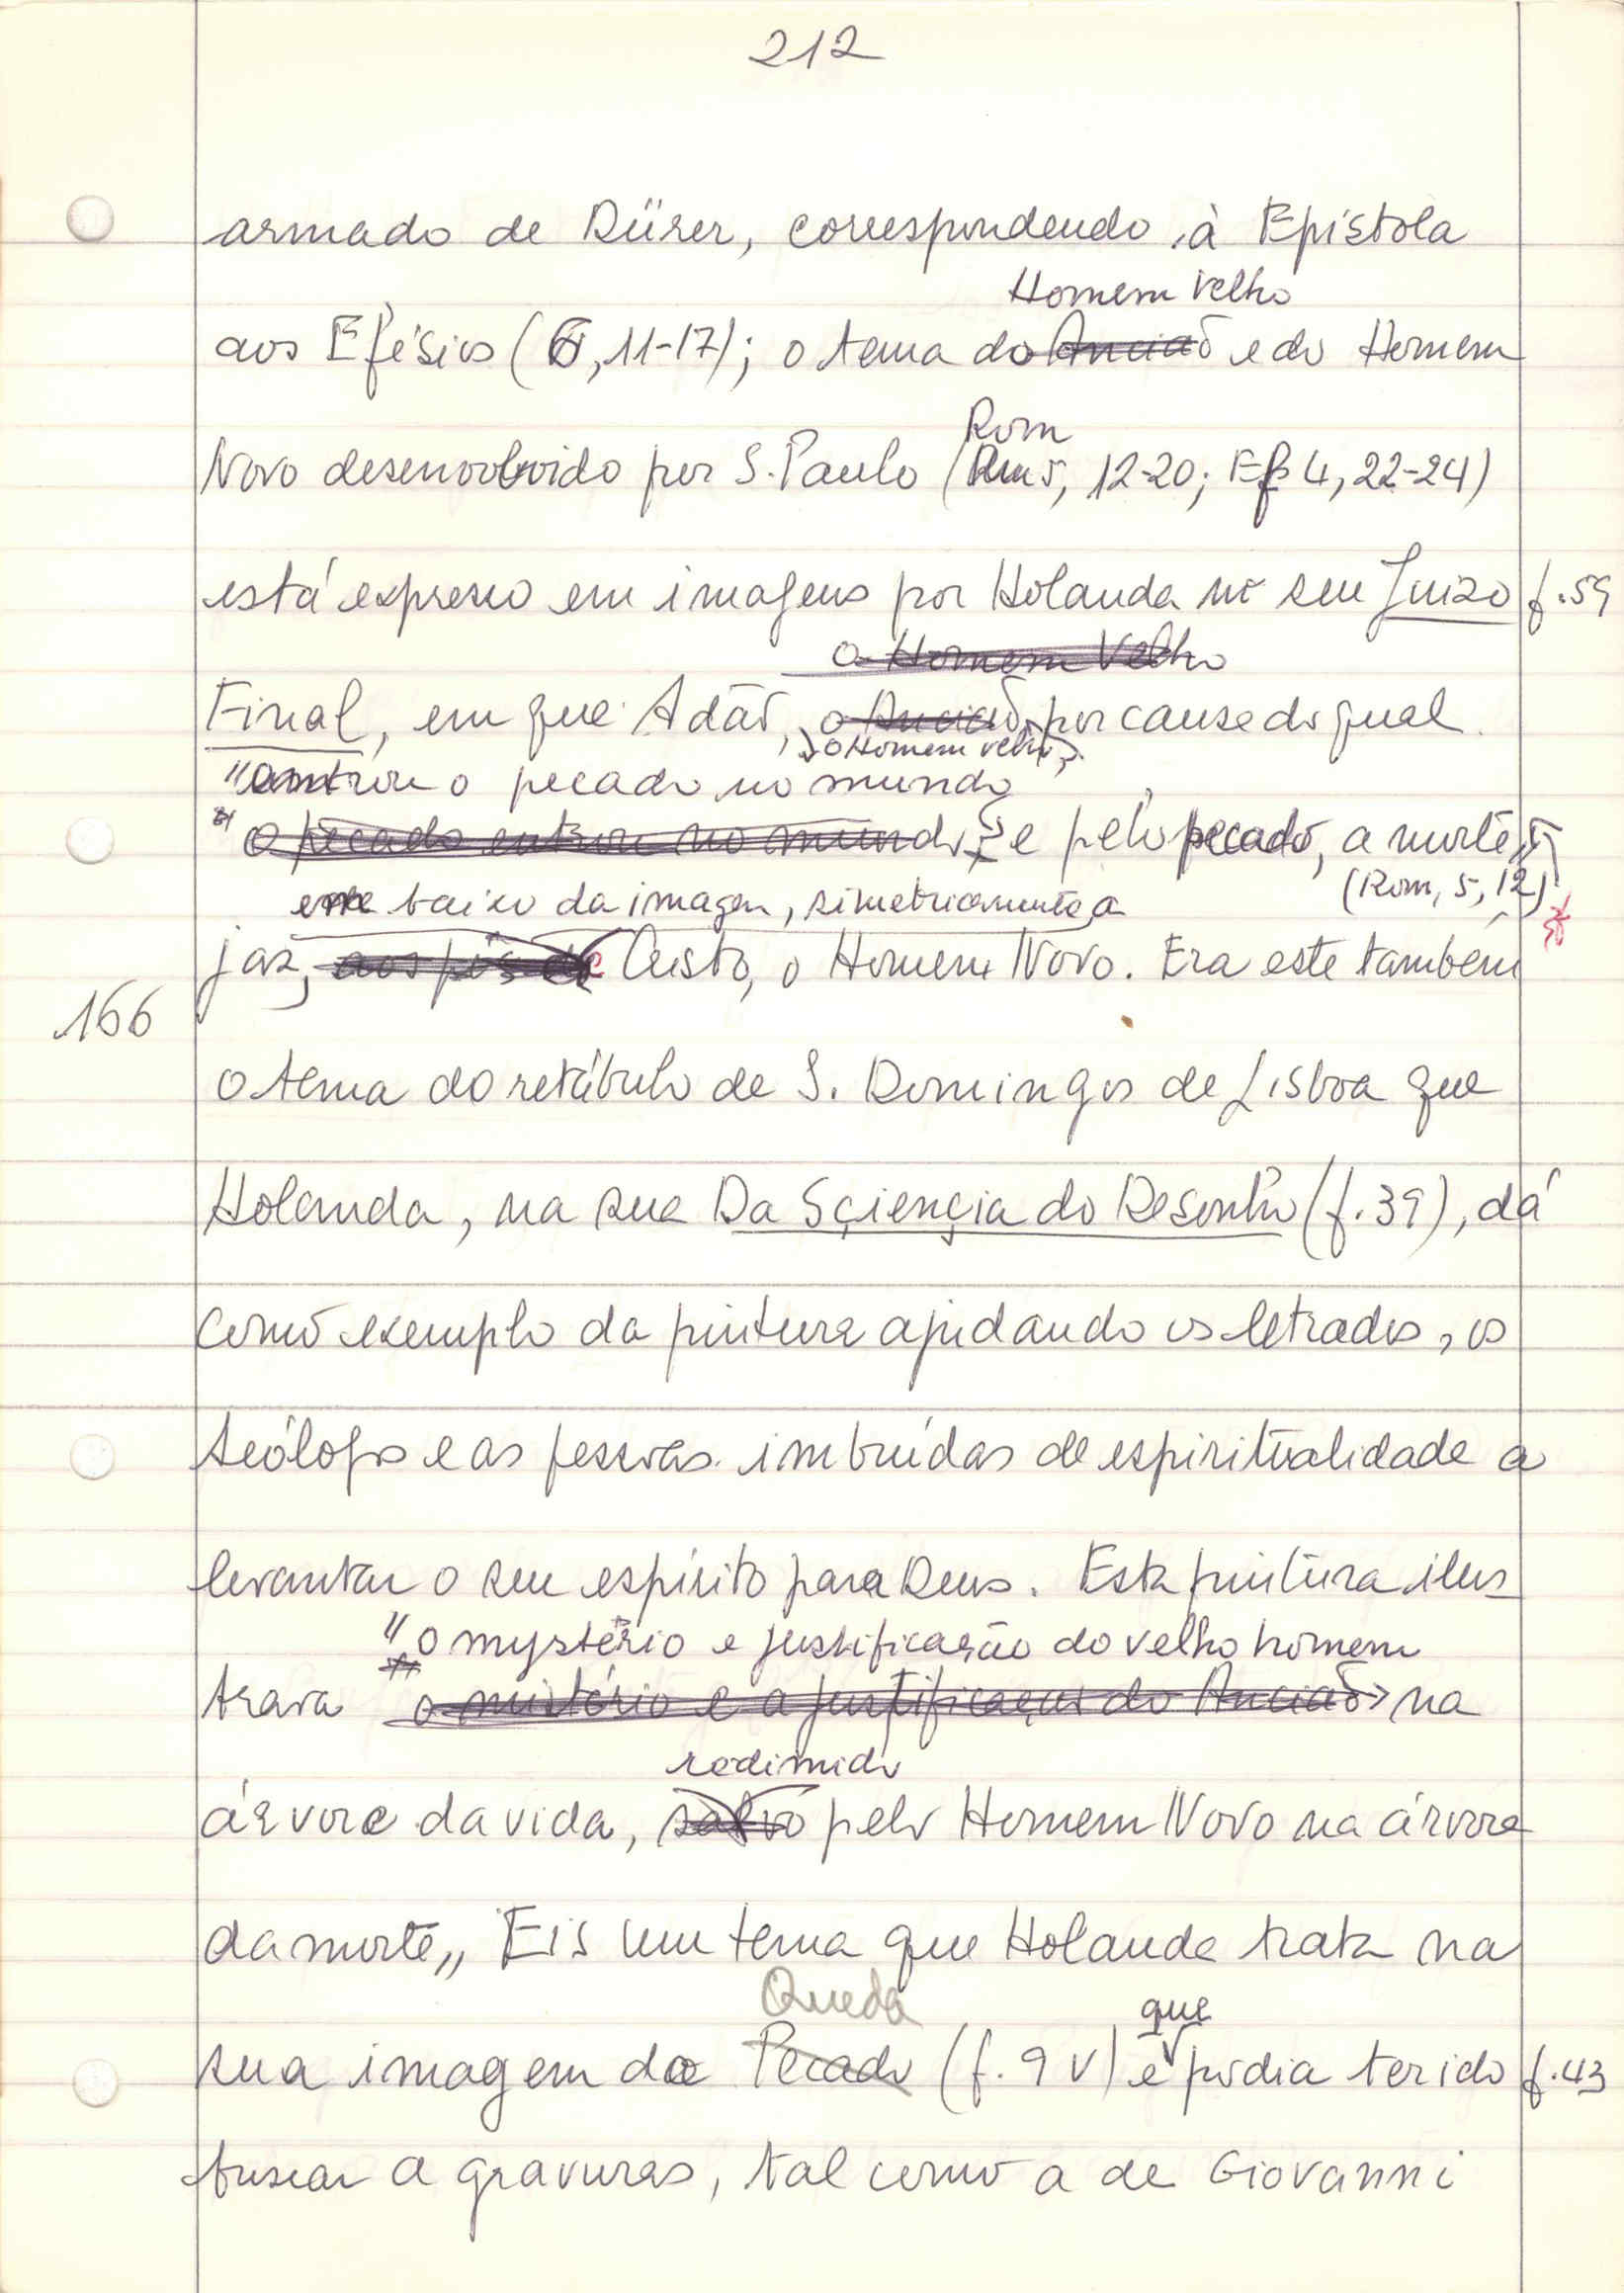 212
armado de Dürer, correspondendo à Epístola
Homem Velho
aos Efésios (6, 11-17); o tema do Ancião e do Homem
Rom
Novo desenvolvido por S. Paulo (Rm 5, 12-20; Ef 4, 22-24)
está expresso em imagens por Holanda no seu Juizo f. 59
o Homem Velho
Final, em que Adão, o Ancião, por causa do qual
, o Homem velho,
"entrou o pecado no mundo
" o pecado entrou no mundo, e pelo pecado, a morte"
em baixo da imagem, simetricamente a (Rom, 5, 12)
jaz, aos pés de Cristo, o Homem Novo. Era este também
166
o tema do retábulo de S. Domingos de Lisboa que
Holanda, na sua Da Sçiençia do Desenho (f. 39), dá
como exemplo da pintura ajudando os letrados, os
teólogos e as pessoas imbuídas de espiritualidade a
levantar o seu espírito para Deus. Esta pintura ilus
"o mystério e justificação do velho homem
trava o mistério e a justificação do Ancião na
redimido
árvore da vida, salvo pelo Homem Novo na árvore
da morte" Eis um tema que Holanda trata na
Queda que
sua imagem da Pecado (f. 9 v) e podia ter ido f. 43
buscar a gravuras, tal como a de Giovanni